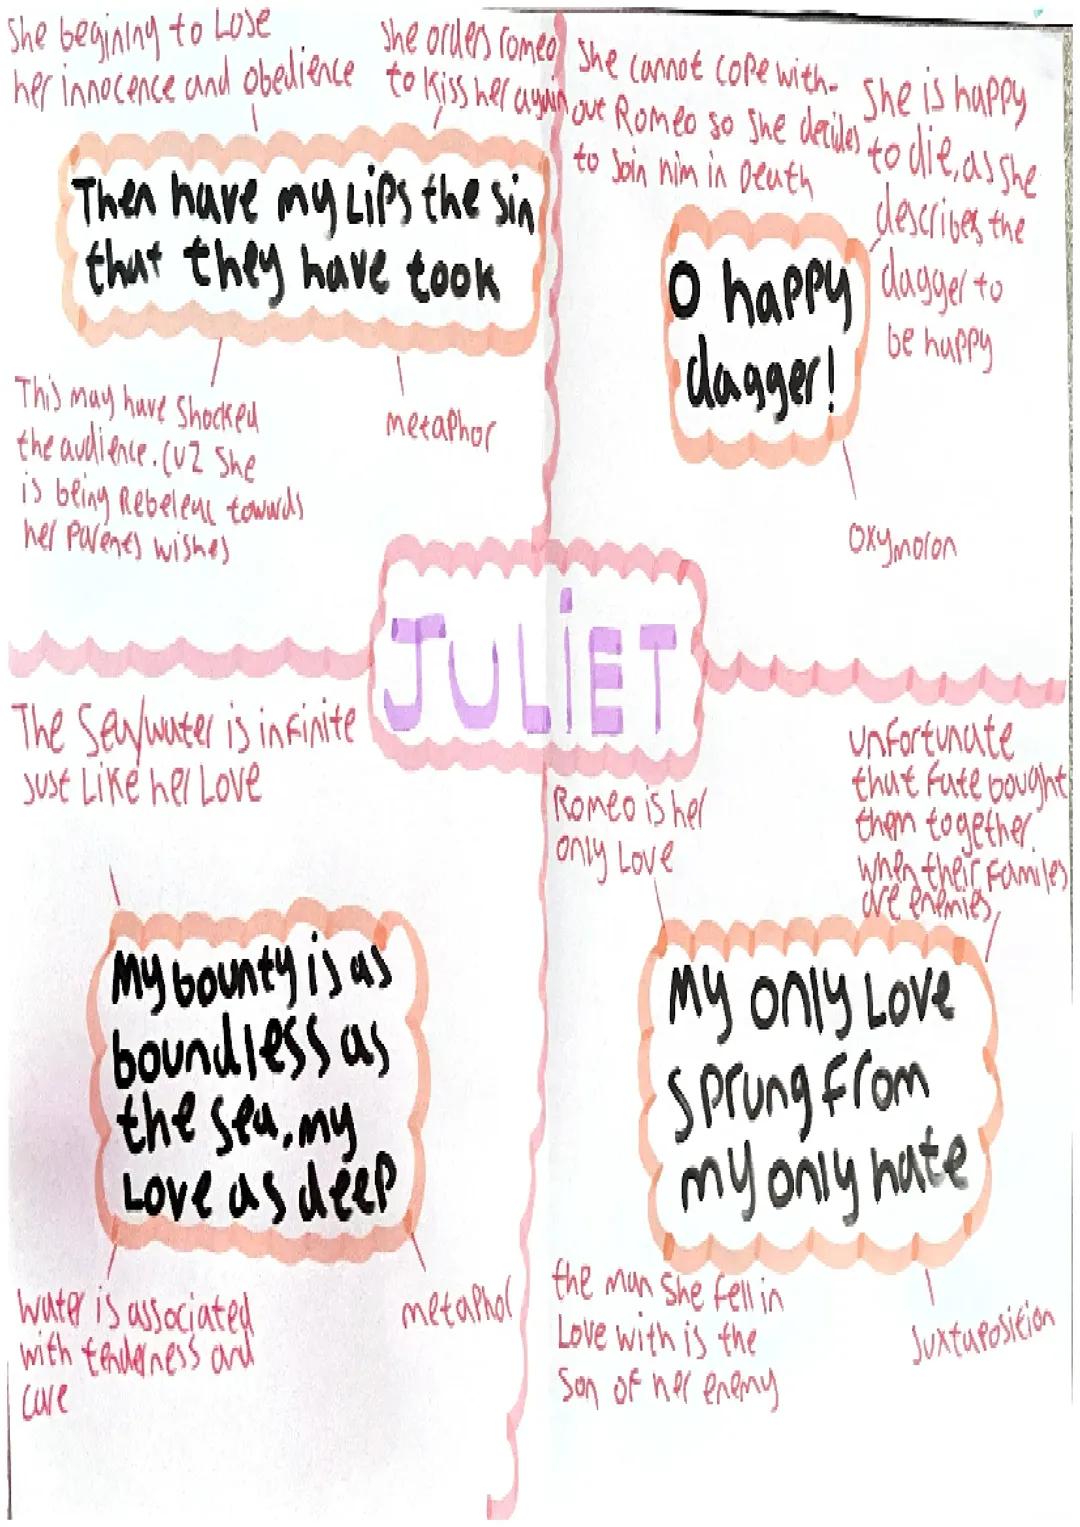 She begining to Lose
her innocence and obedience
She orders romeo
to Kiss her again
Then have my Lips the sin
that they have took
This may have Shocked
the audience. Cuz She
is being Rebeleuc towards
her parents wishes
metaphor
She cannot cope with-
out Romeo so She decides
to Join him in Death
She is happy
to die, as she
describes the
dagger to
be happy
O happy
dagger!
oxymoron
JULIET
The Sea/water is infinite
Just Like her Love
My bounty is as
boundless as
the sea, my
Love as deep
Water is associated
with tenderness and
care
metaphor
Romeo is her
only Love
unfortunate
that fate bought
them together
when their Familes
are enemies
My only Love
sprung from
my only hate
the man She fell in
Love with is the
Son of her enemy
Juxtaposition